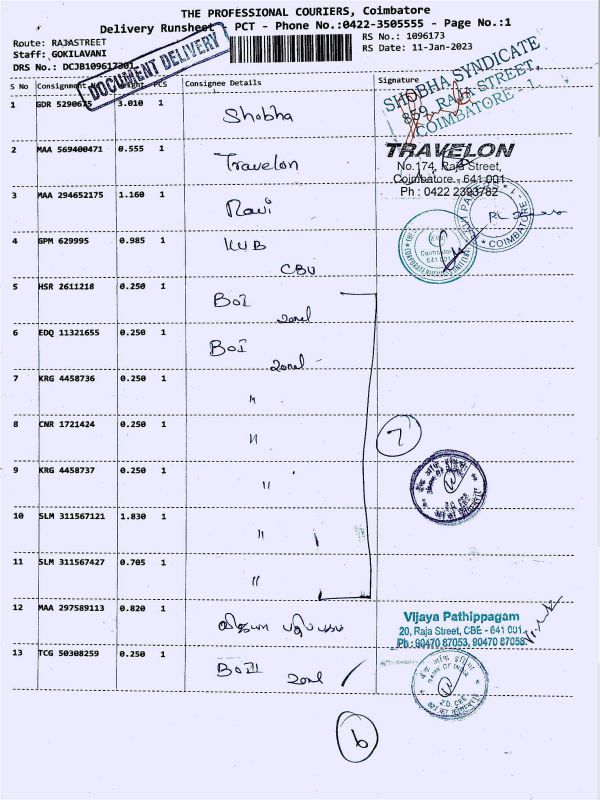 THE PROFESSIONAL COURIERS, Coimbatore
Delivery Runsheet - PCT - Phone No.:0422-3505555 - Page No.:1
Route: RAJASTREET
RS No.: 1096173
Staff: GOKILAVANI
RS Date: 11-Jan-2023
DRS No.: DCJB1096173
DOCUMENT DELIVERY
S No Consignment PCS Consignee Details Signature
1 GDR 5290675 3.010 1 Shobha
SHOBHA SYNDICATE
859, RAJA STREET,
COIMBATORE - 1.
2 MAA 569400471 0.555 1 Travelon
TRAVELON
No.174, Raja Street,
Coimbatore - 641 001
Ph : 0422 2393782
3 MAA 294652175 1.160 1 Ravi
COIMBATORE - 1
4 GPM 629995 0.985 1 KUB
CBU
Coimbatore
641 001
5 HSR 2611218 0.250 1 BOI
zonel
6 EDQ 11321655 0.250 1 BOI
zonel
7 KRG 4458736 0.250 1 "
8 CNR 1721424 0.250 1 "
7
9 KRG 4458737 0.250 1 "
Z.O. CBE
10 SLM 311567121 1.830 1 "
11 SLM 311567427 0.705 1 "
12 MAA 297589113 0.820 1
Vijaya Pathippagam
20, Raja Street, CBE - 641 001.
Ph : 90470 87053, 90470 87055
13 TCG 50308259 0.250 1 BOI zonel
BANK OF INDIA
Z.O. CBE
6